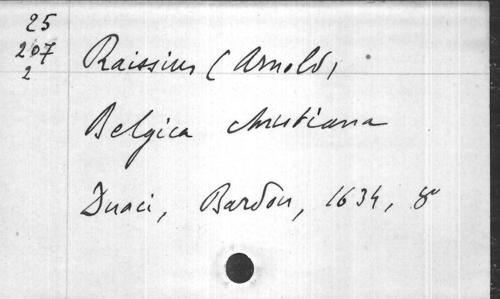 25
207
2
Raissius (Arnold)
Belgica christiana
Duaci, Bardou, 1634, 8º